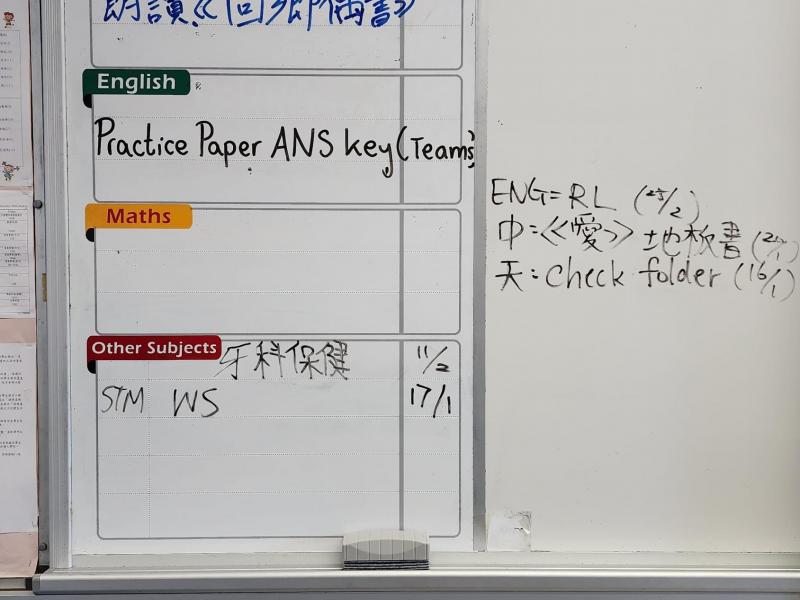 朗讀《回鄉偶書》
English
Practice Paper ANS key (Teams)
Maths
Other Subjects
牙科保健 11/2
STM WS 17/1
ENG = RL (25/2)
中:《愛》
天: check folder (16/1)